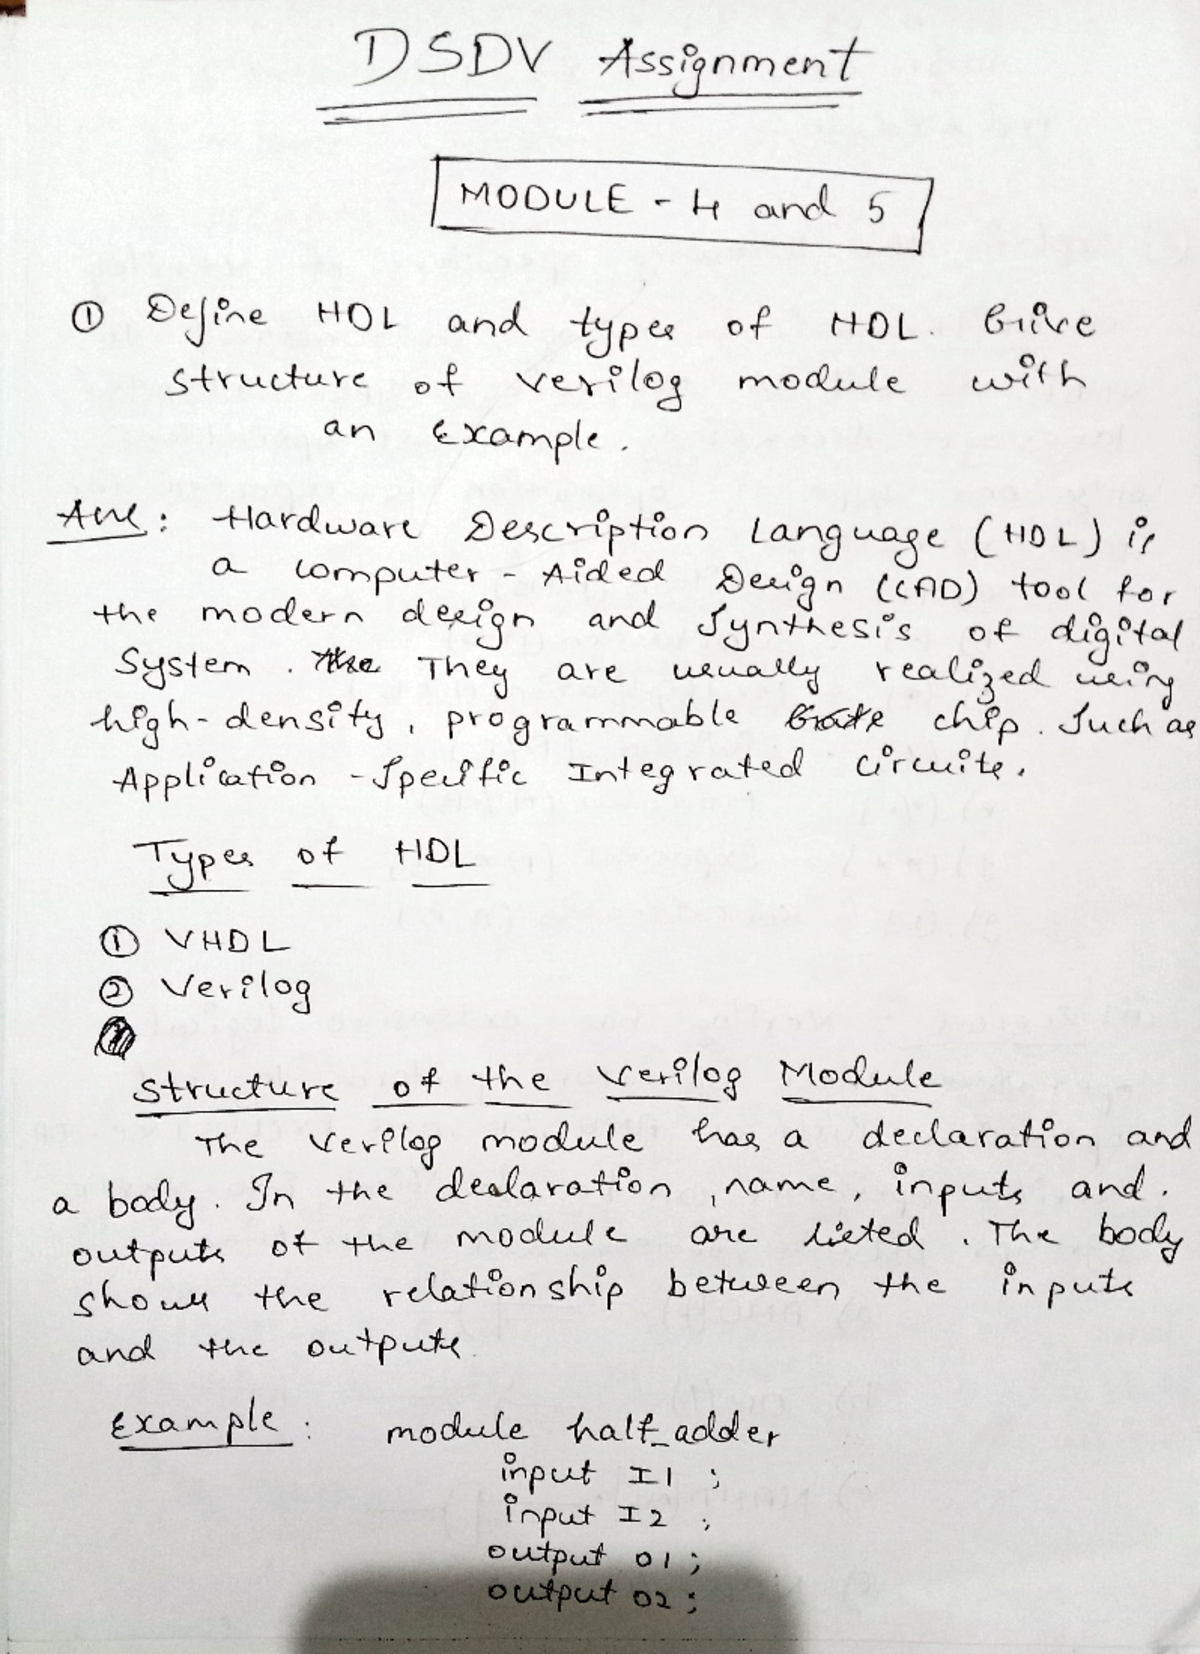 DSDV Assignment
MODULE - 4 and 5
① Define HDL and types of HDL. Give
structure of verilog module with
an Example.
Ans: Hardware Description Language (HDL) is
a computer - Aided Design (CAD) tool for
the modern design and synthesis of digital
System. They are usually realized using
high-density, programmable chip. Such as
Application - Specific Integrated circuits.
Types of HDL
① VHDL
② Verilog
Structure of the Verilog Module
The Verilog module has a declaration and
a body. In the declaration, name, inputs and.
outputs of the module are listed. The body
shows the relationship between the inputs
and the outputs.
Example: module half_adder
input I1 ;
input I2 ;
output O1 ;
output O2 ;